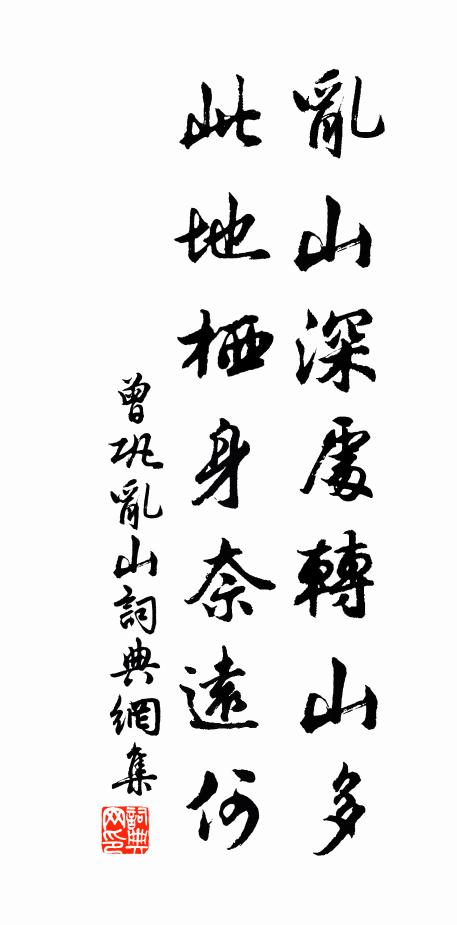 亂山深處轉山多
此地栖身奈遠何
曾鞏亂山詞典網集
詞典网印